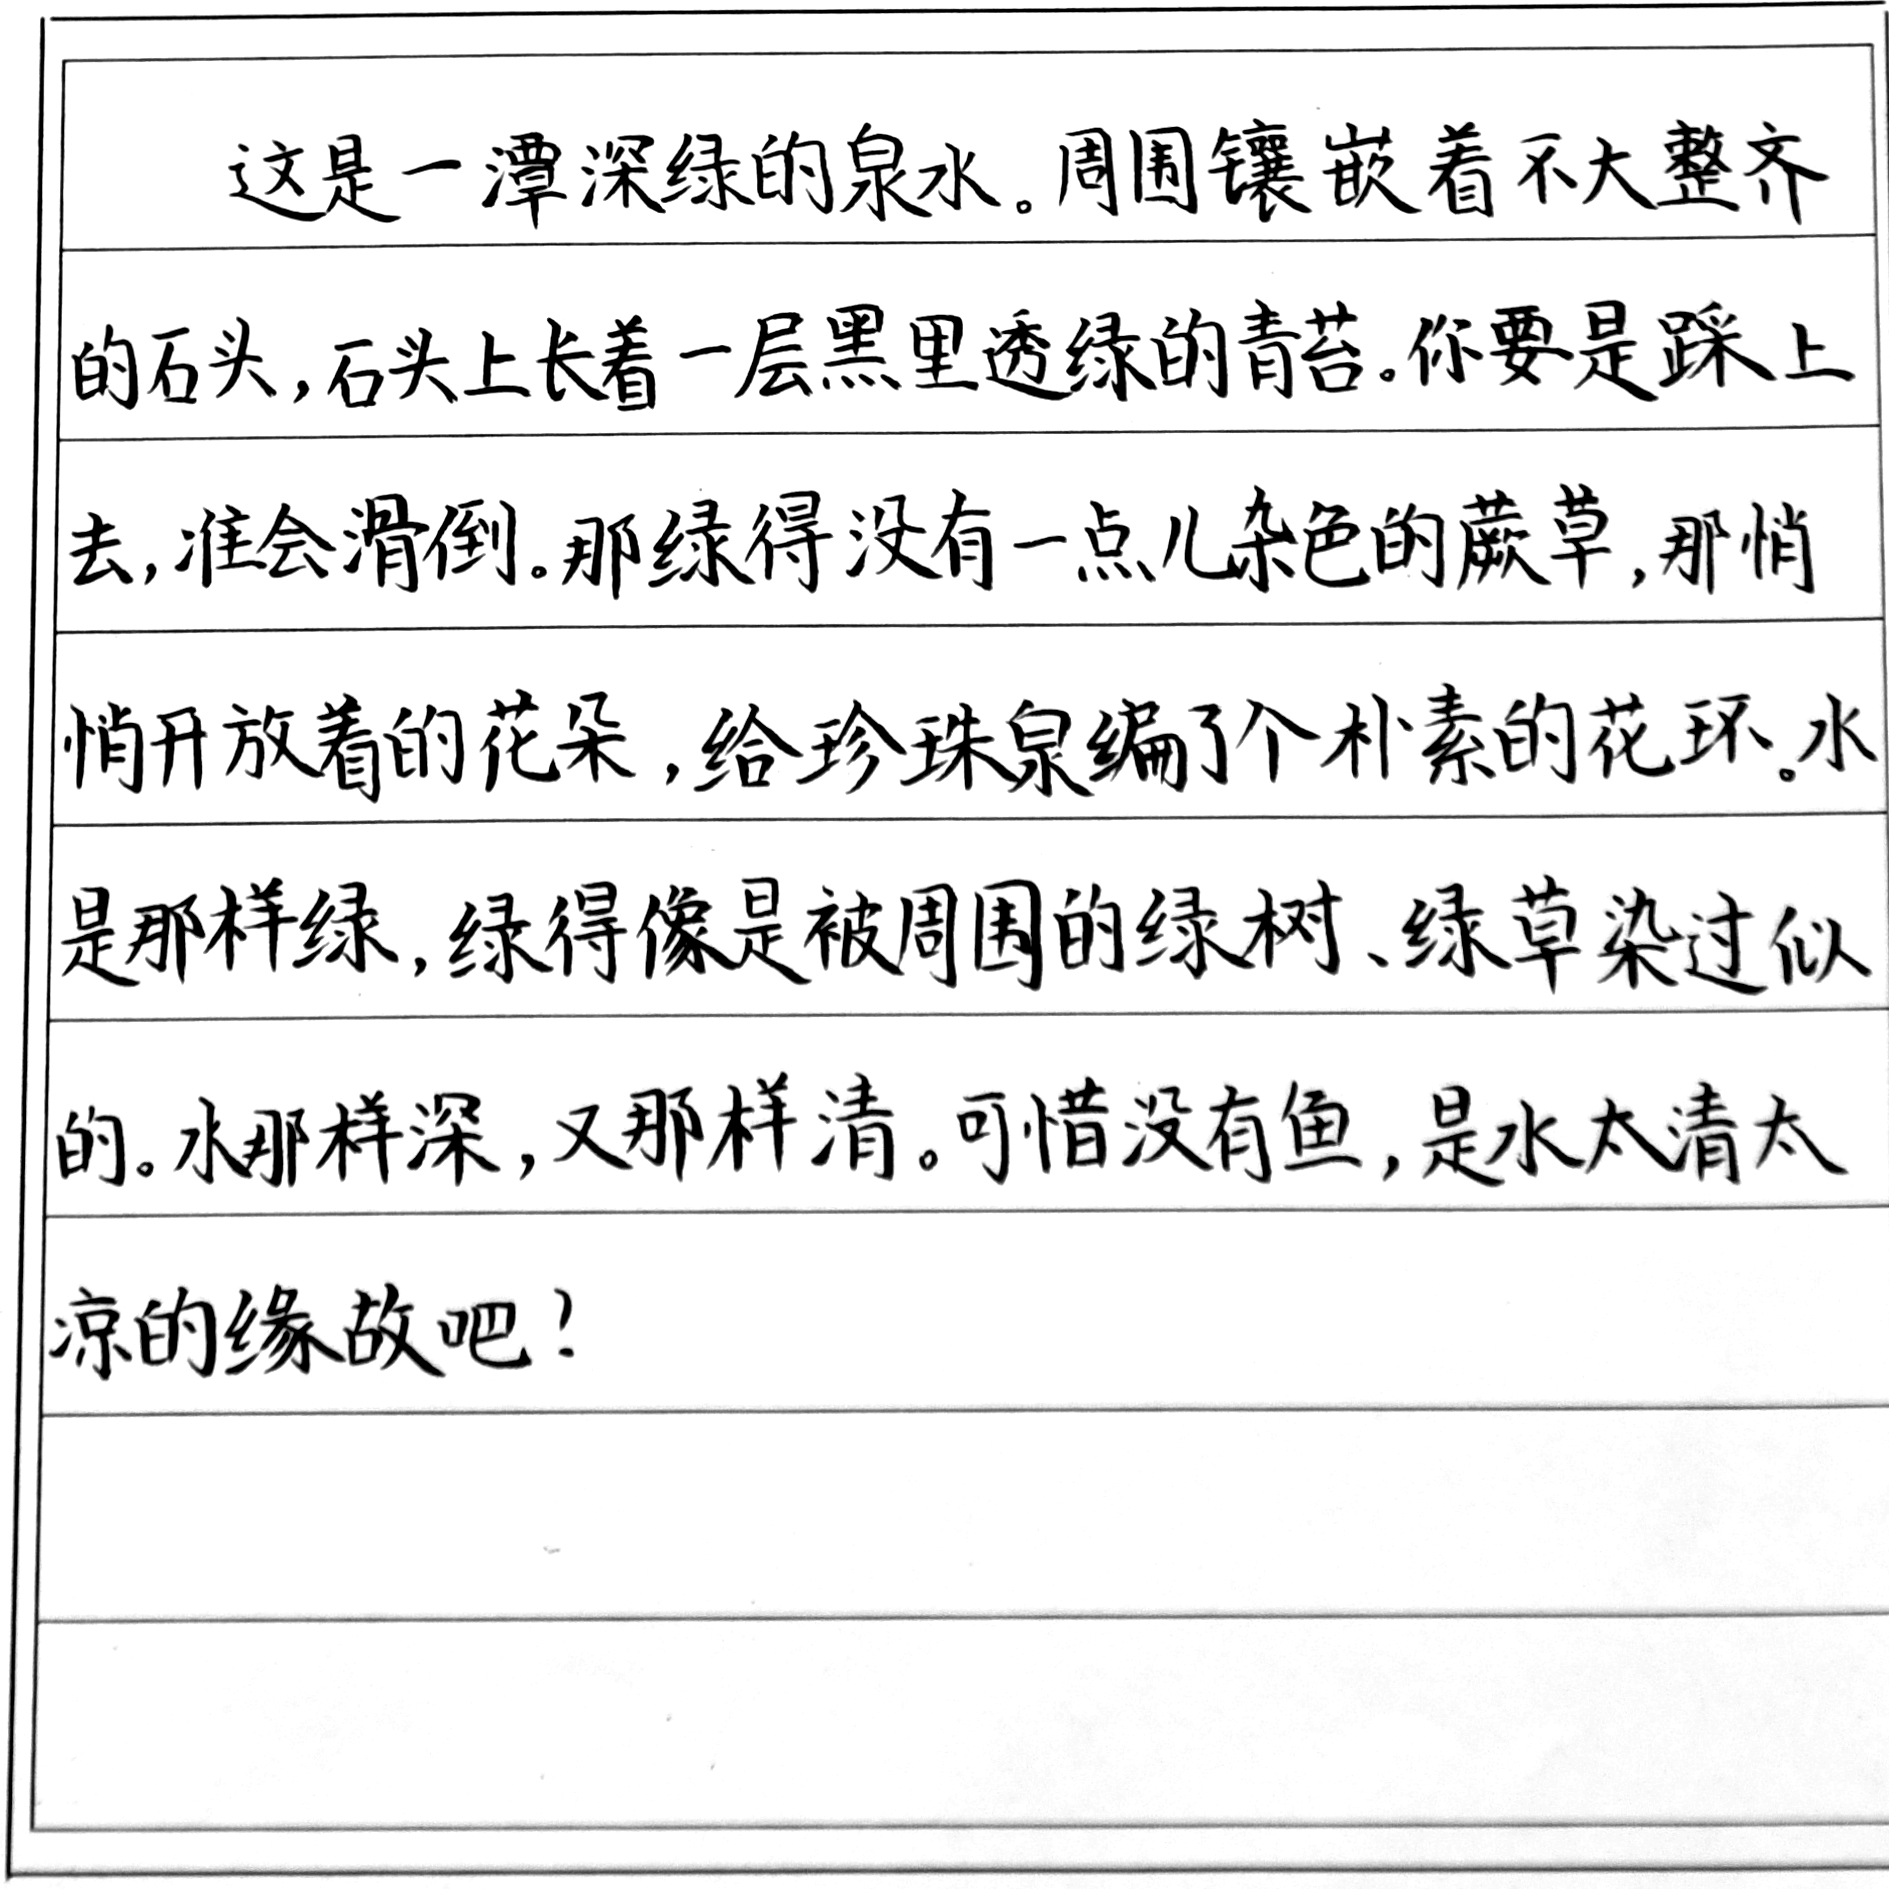 这是一潭深绿的泉水。周围镶嵌着不大整齐
的石头,石头上长着一层黑里透绿的青苔。你要是踩上
去,准会滑倒。那绿得没有一点儿杂色的蕨草,那悄
悄开放着的花朵,给珍珠泉编了个朴素的花环。水
是那样绿,绿得像是被周围的绿树、绿草染过似
的。水那样深,又那样清。可惜没有鱼,是水太清太
凉的缘故吧!